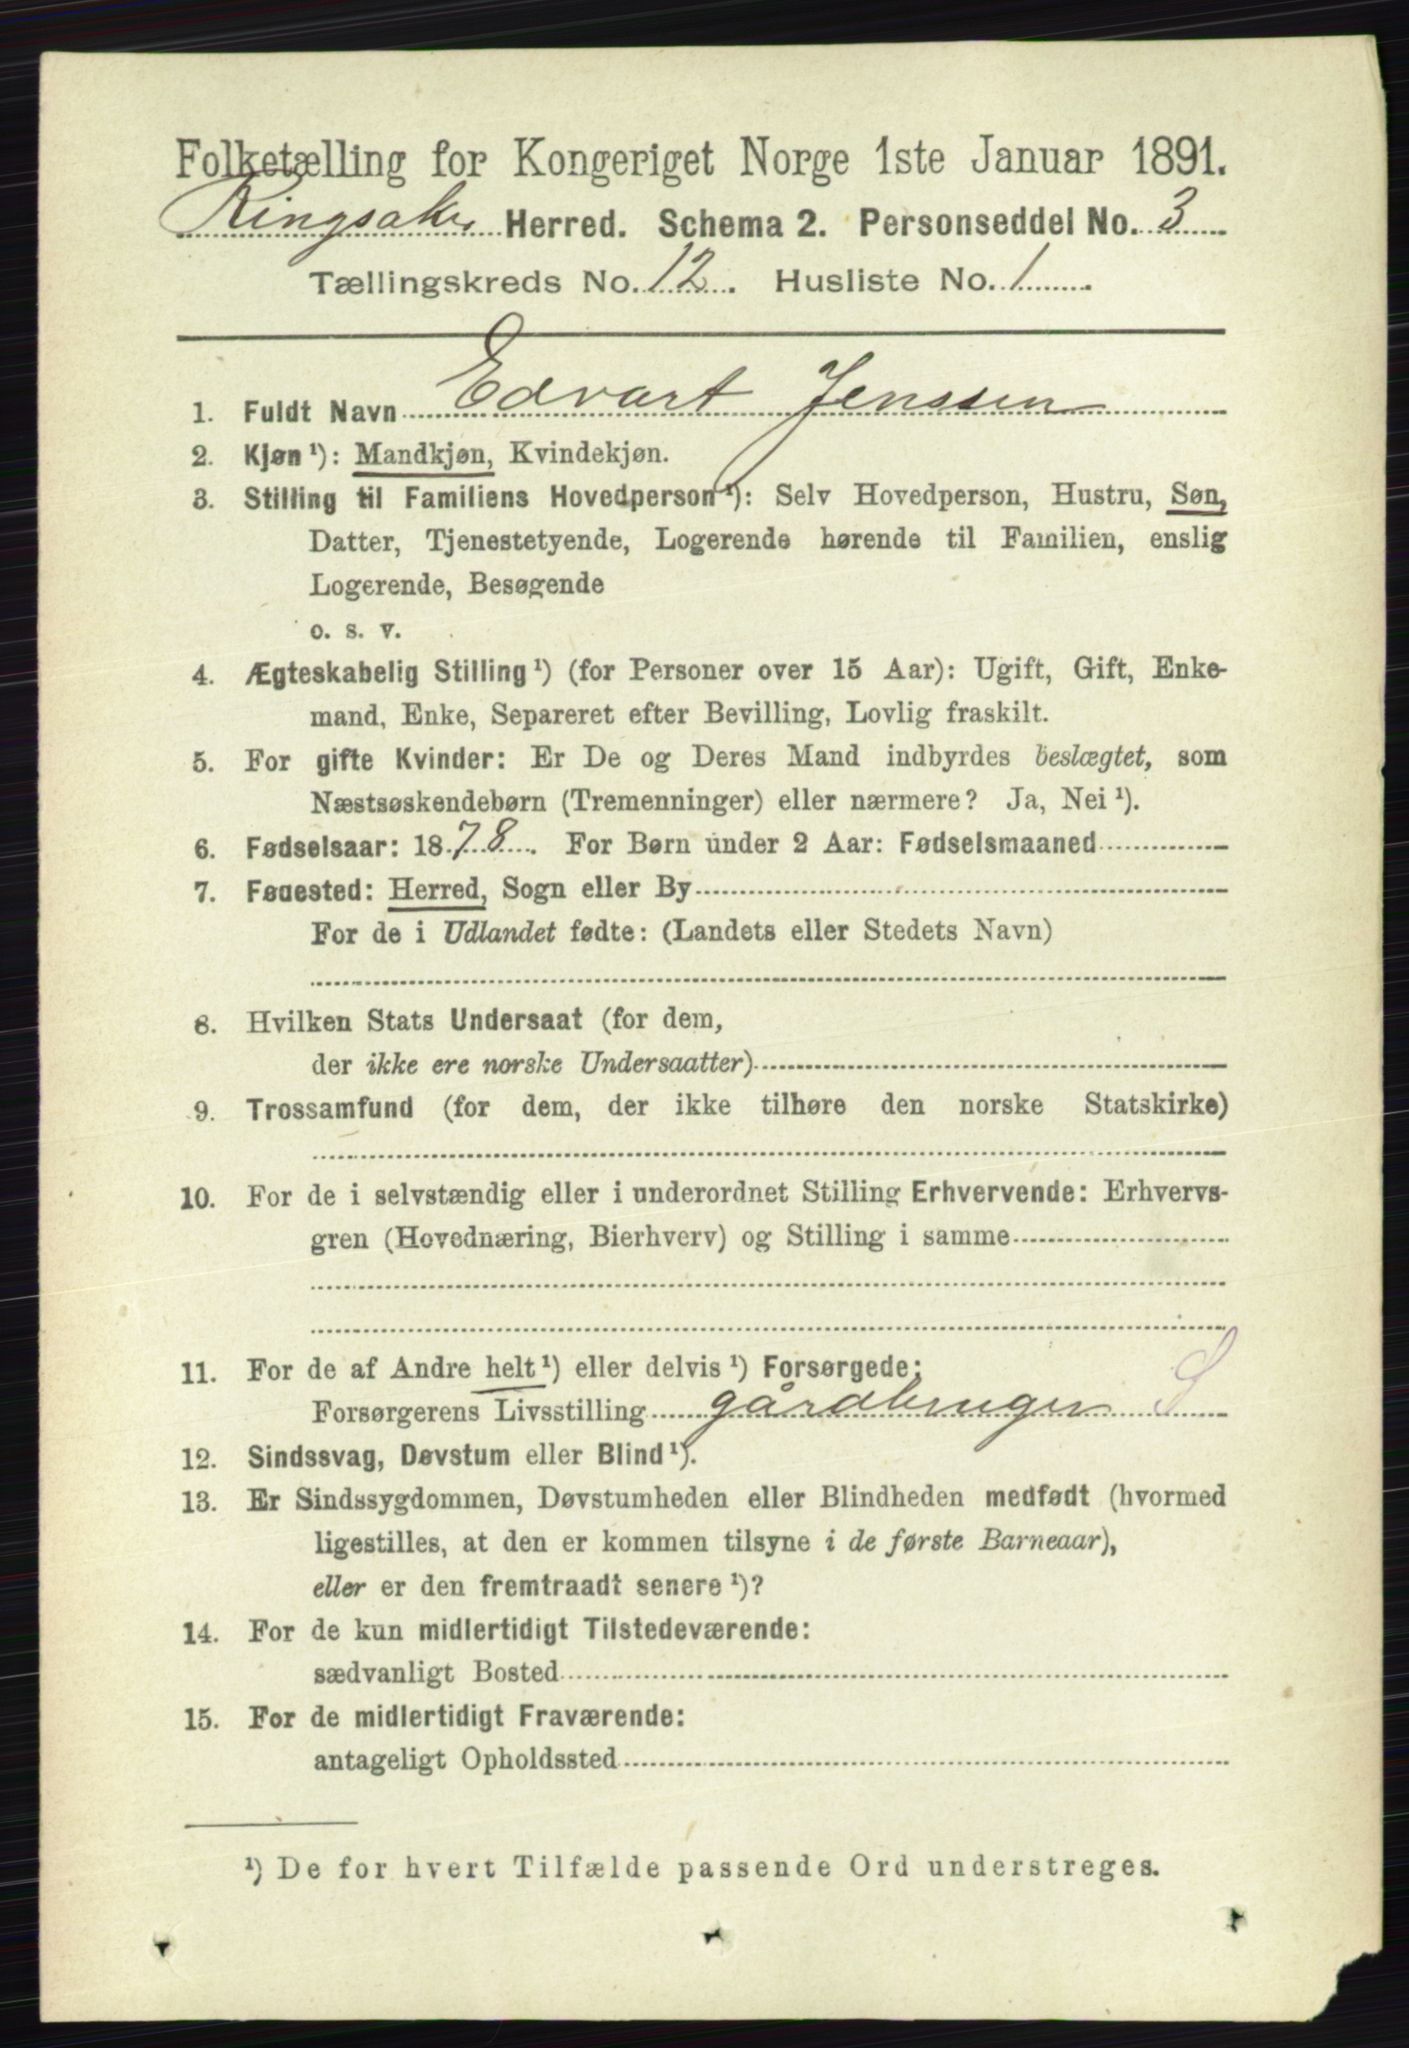 Folketælling for Kongeriget Norge 1ste Januar 1891.
Ringsaker Herred. Schema 2. Personseddel No. 3
Tællingskreds No. 12. Husliste No. 1
1. Fuldt Navn Edvart Jenssen
2. Kjøn¹): Mandkjøn, Kvindekjøn.
3. Stilling til Familiens Hovedperson¹): Selv Hovedperson, Hustru, Søn,
Datter, Tjenestetyende, Logerende hørende til Familien, enslig
Logerende, Besøgende
o. s. v.
4. Ægteskabelig Stilling¹) (for Personer over 15 Aar): Ugift, Gift, Enke-
mand, Enke, Separeret efter Bevilling, Lovlig fraskilt.
5. For gifte Kvinder: Er De og Deres Mand indbyrdes beslægtet, som
Næstsøskendebørn (Tremenninger) eller nærmere? Ja, Nei¹).
6. Fødselsaar: 1878. For Børn under 2 Aar: Fødselsmaaned
7. Fødested: Herred, Sogn eller By
For de i Udlandet fødte: (Landets eller Stedets Navn)
8. Hvilken Stats Undersaat (for dem,
der ikke ere norske Undersaatter)
9. Trossamfund (for dem, der ikke tilhøre den norske Statskirke)
10. For de i selvstændig eller i underordnet Stilling Erhvervende: Erhvervs-
gren (Hovednæring, Bierhverv) og Stilling i samme
11. For de af Andre helt¹) eller delvis¹) Forsørgede:
Forsørgerens Livsstilling gårdbruger S
12. Sindssvag, Døvstum eller Blind¹).
13. Er Sindssygdommen, Døvstumheden eller Blindheden medfødt (hvormed
ligestilles, at den er kommen tilsyne i de første Barneaar),
eller er den fremtraadt senere¹)?
14. For de kun midlertidigt Tilstedeværende:
sædvanligt Bosted
15. For de midlertidigt Fraværende:
antageligt Opholdssted
¹) De for hvert Tilfælde passende Ord understreges.